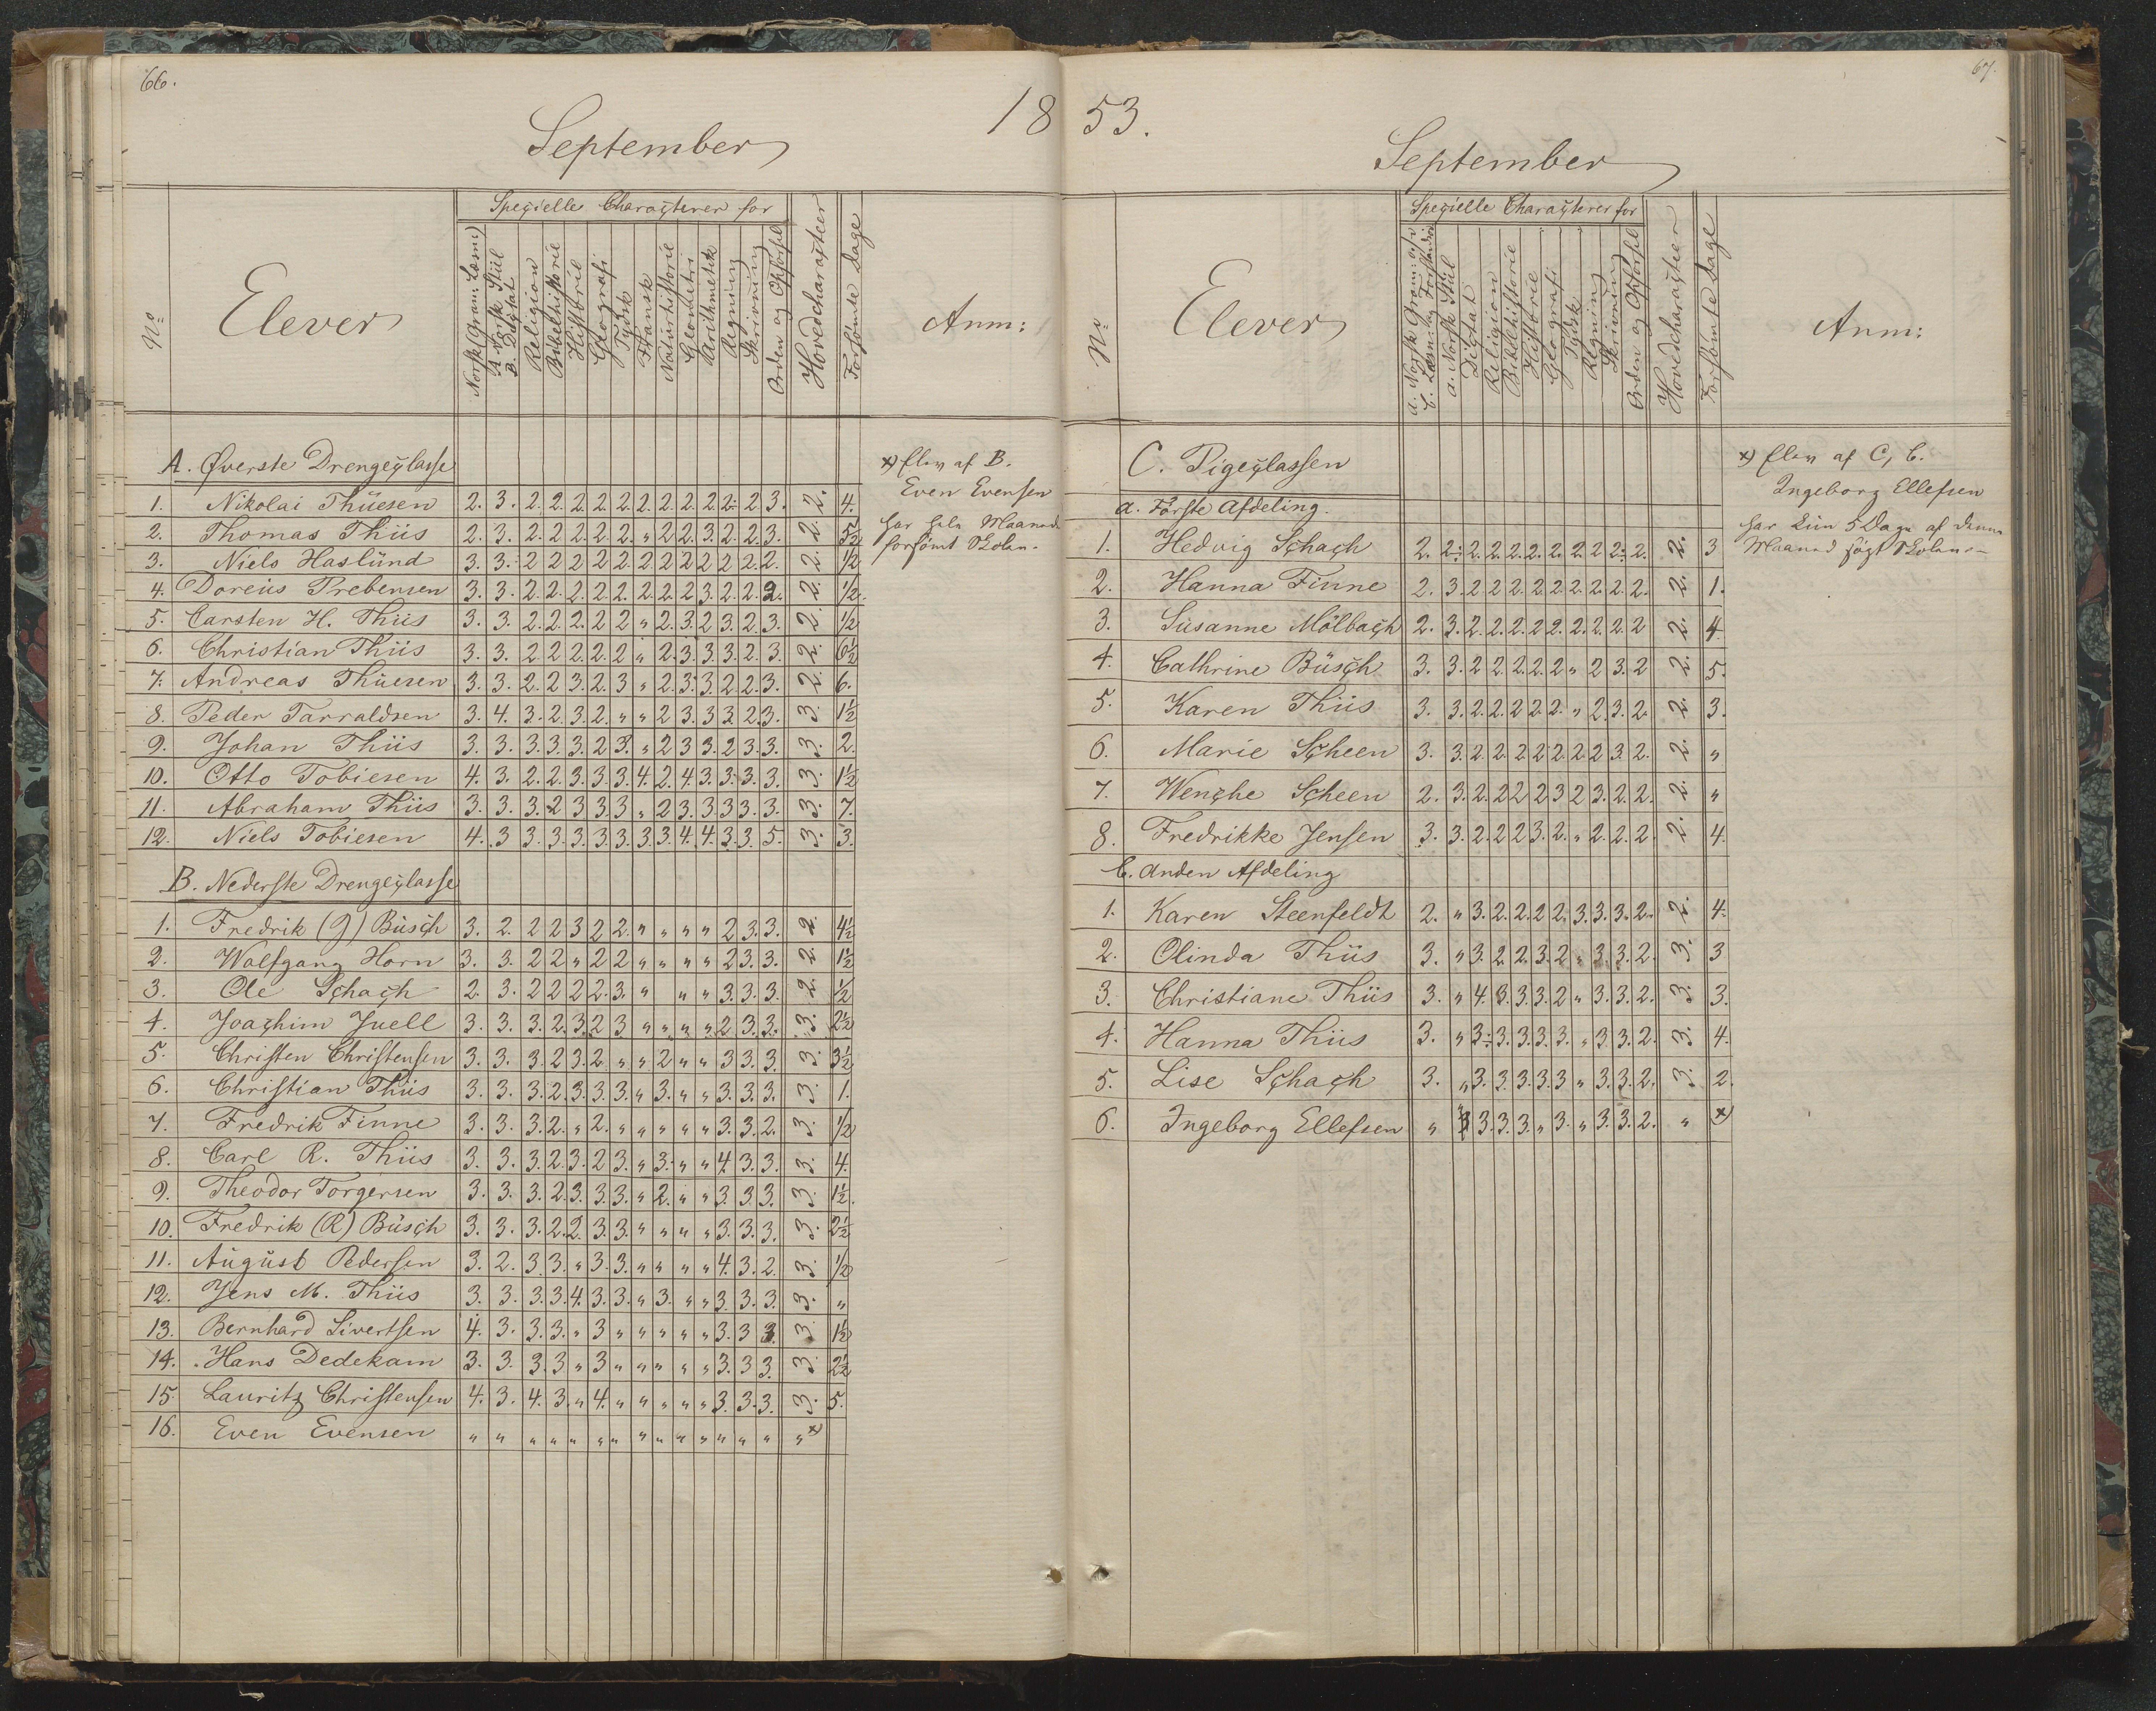 66.
18
September
Specielle Characterer for
No
Elever
Norsk (Gram: Læsn:)
A Norsk Stiil
B. Dictat
Religion
Bibelhistorie
Historie
Geografi
Tydsk
Fransk
Naturhistorie
Geometri
Arithmetik
Regning
Skrivning
Orden og Opførsel
Hovedcharacter
Forsømte Dage
Anm:
A. Øverste Drengeclasse
1. Nikolai Thüesen 2. 3. 2. 2. 2. 2. 2. 2. 2. 2. 2. 2÷ 2 3. 2. 4.
2. Thomas Thiis 2. 3. 2. 2. 2. 2. 2. " 2 2. 3. 2. 2. 3. 2. 5½
3. Niels Haslünd 3. 3. 2 2 2 2 2. 2 2 2 2 2 2. 2. 2. ½
4. Doreüs Prebensen 3. 3. 2. 2. 2. 2. 2. 2. 2. 2 3. 2. 2. 2. 2. ½.
5. Carsten H. Thiis 3. 3. 2. 2. 2. 2 2 " 2. 3. 2 3. 2. 3. 2. ½
6. Christian Thiis 3. 3. 2 2 2. 2. 2 " 2. 3. 3. 3. 2. 3. 2. 6½
7. Andreas Thüesen 3. 3. 2. 2 3. 2. 3 " 2. 3. 3. 2. 2. 3. 2. 6.
8. Peder Tarraldsen 3. 4. 3. 2. 3. 2. " " 2 3. 3 3. 2. 3. 3. 1½
9. Johan Thiis 3. 3. 3. 3. 3. 2 3. " 2 3 3. 2 3. 3. 3. 2.
10. Otto Tobiesen 4. 3. 2. 2. 3. 3. 3. 4. 2. 4. 3. 3. 3. 3. 3. 1½
11. Abraham Thiis 3. 3. 3. 2 3 3. 3 " 2 3. 3. 3 3. 3. 3. 7.
12. Niels Tobiesen 4. 3 3. 3. 3. 3. 3. 3. 3. 4. 4. 3. 3. 5. 3. 3.
B. Nederste Drengeclasse
1. Fredrik (J) Büsch 3. 2. 2 2 3 2 2. " " " " 2 3. 3. 2. 4½
2. Wolfgang Horn 3. 3. 2 2 " 2 2 " " " " 2 3. 3. 2. 1½
3. Ole Schach 2. 3. 2 2 2 2. 3. " " " 3. 3. 3. 2. ½
4. Joachim Juell 3. 3. 3. 2. 3. 2 3 " " " " 2 3. 3. 3. 2½
5. Christen Christensen 3. 3. 3. 2 3. 2 " " 2 " " 3 3. 3. 3. 3½
6. Christian Thiis 3. 3. 3. 2. 3. 3. 3. " 3. " " 3. 3. 3. 3. 1.
7. Fredrik Finne 3. 3. 3. 2. " 2. " " " " " 3. 3. 2. 3. ½
8. Carl R. Thiis 3. 3. 3. 2. 3. 2 3. " 3. " " 4. 3. 3. 3. 4.
9. Theodor Torgersen 3. 3. 3. 2. 3. 3. 3. " 2. " " 3. 3. 3. 3. 1½.
10. Fredrik (R) Büsch 3. 3. 3. 2. 2. 3. 3. " " " " 3. 3. 3. 3. 2½
11. Aügüst Pedersen 3. 2. 3 3. " 3. 3. " " " " 4. 3. 2. 3. ½
12. Jens M. Thiis 3. 3. 3. 3. 4. 3. 3. " 3. " " 3. 3. 3. 3. "
13. Bernhard Sivertsen 4. 3. 3. 3. " 3 " " " " " 3. 3 3. 3. 1½
14. Hans Dedekam 3. 3. 3. 3 " 3 " " " " " 3. 3 3. 3. 2½
15. Lauritz Christensen 4. 3. 4. 3. " 4. " " " " " 3. 3. 3. 3. 5.
16. Even Evensen " " " " " " " " " " " " " " " x)
x) Elev af B.
Even Evensen
har hele Maaneden
forsømt Skolen.
67.
53.
September
Specielle Characterer for
No
Elever
a. Norsk Gram: og
b. Læsn: og Forstandsø
a. Norsk Stiil
Dictat
Religion
Bibelhistorie
Historie
Geografi
Tydsk
Regning
Skrivning
Orden og Opførsel
Hovedcharacter
Forsømte Dage
Anm:
C. Pigeclassen
a. Første Afdeling.
1. Hedvig Schach 2. 2÷ 2. 2. 2. 2. 2. 2. 2 2÷ 2. 2. 3
2. Hanna Finne 2. 3. 2 2 2 2 2 2. 2. 2. 2. 2. 1.
3. Süsanne Mölbach 2. 3. 2. 2. 2. 2 2. 2. 2. 2. 2 2. 4.
4. Cathrine Büsch 3. 3. 2 2 2. 2. 2 " 2 3. 2 2. 5.
5. Karen Thiis 3. 3. 2. 2. 2 2. 2. " 2. 3. 2. 2. 3.
6. Marie Scheen 3. 3. 2. 2. 2 2 2. 2 2 3. 2. 2. "
7. Wenche Scheen 2. 3. 2. 2 2 2 3 2 3. 2. 2. 2. "
8. Fredrikke Jensen 3. 3. 2. 2 2 3. 2. " 2. 2. 2. 2. 4.
b. Anden Afdeling
1. Karen Steenfeldt 2. " 3. 2. 2. 2 2. 3. 3. 3. 2. 2. 4.
2. Olinda Thiis 3. " 3. 2. 2. 3. 2 " 3. 3. 2. 3. 3
3. Christiane Thiis 3. " 4. 3. 3. 3. 2 " 3. 3. 2. 3. 3.
4. Hanna Thiis 3. " 3÷ 3. 3. 3. 3. " 3 3. 2. 3. 4.
5. Lise Schach 3. " 3. 3. 3. 3. 3 " 3. 3. 2. 3. 2.
6. Ingeborg Ellefsen " 3. 3. 3. " 3. " 3. 3. 2. " x)
x) Elev af C, b.
Ingeborg Ellefsen
har kün 5 Dage af denne
Maaned søgt Skolen.